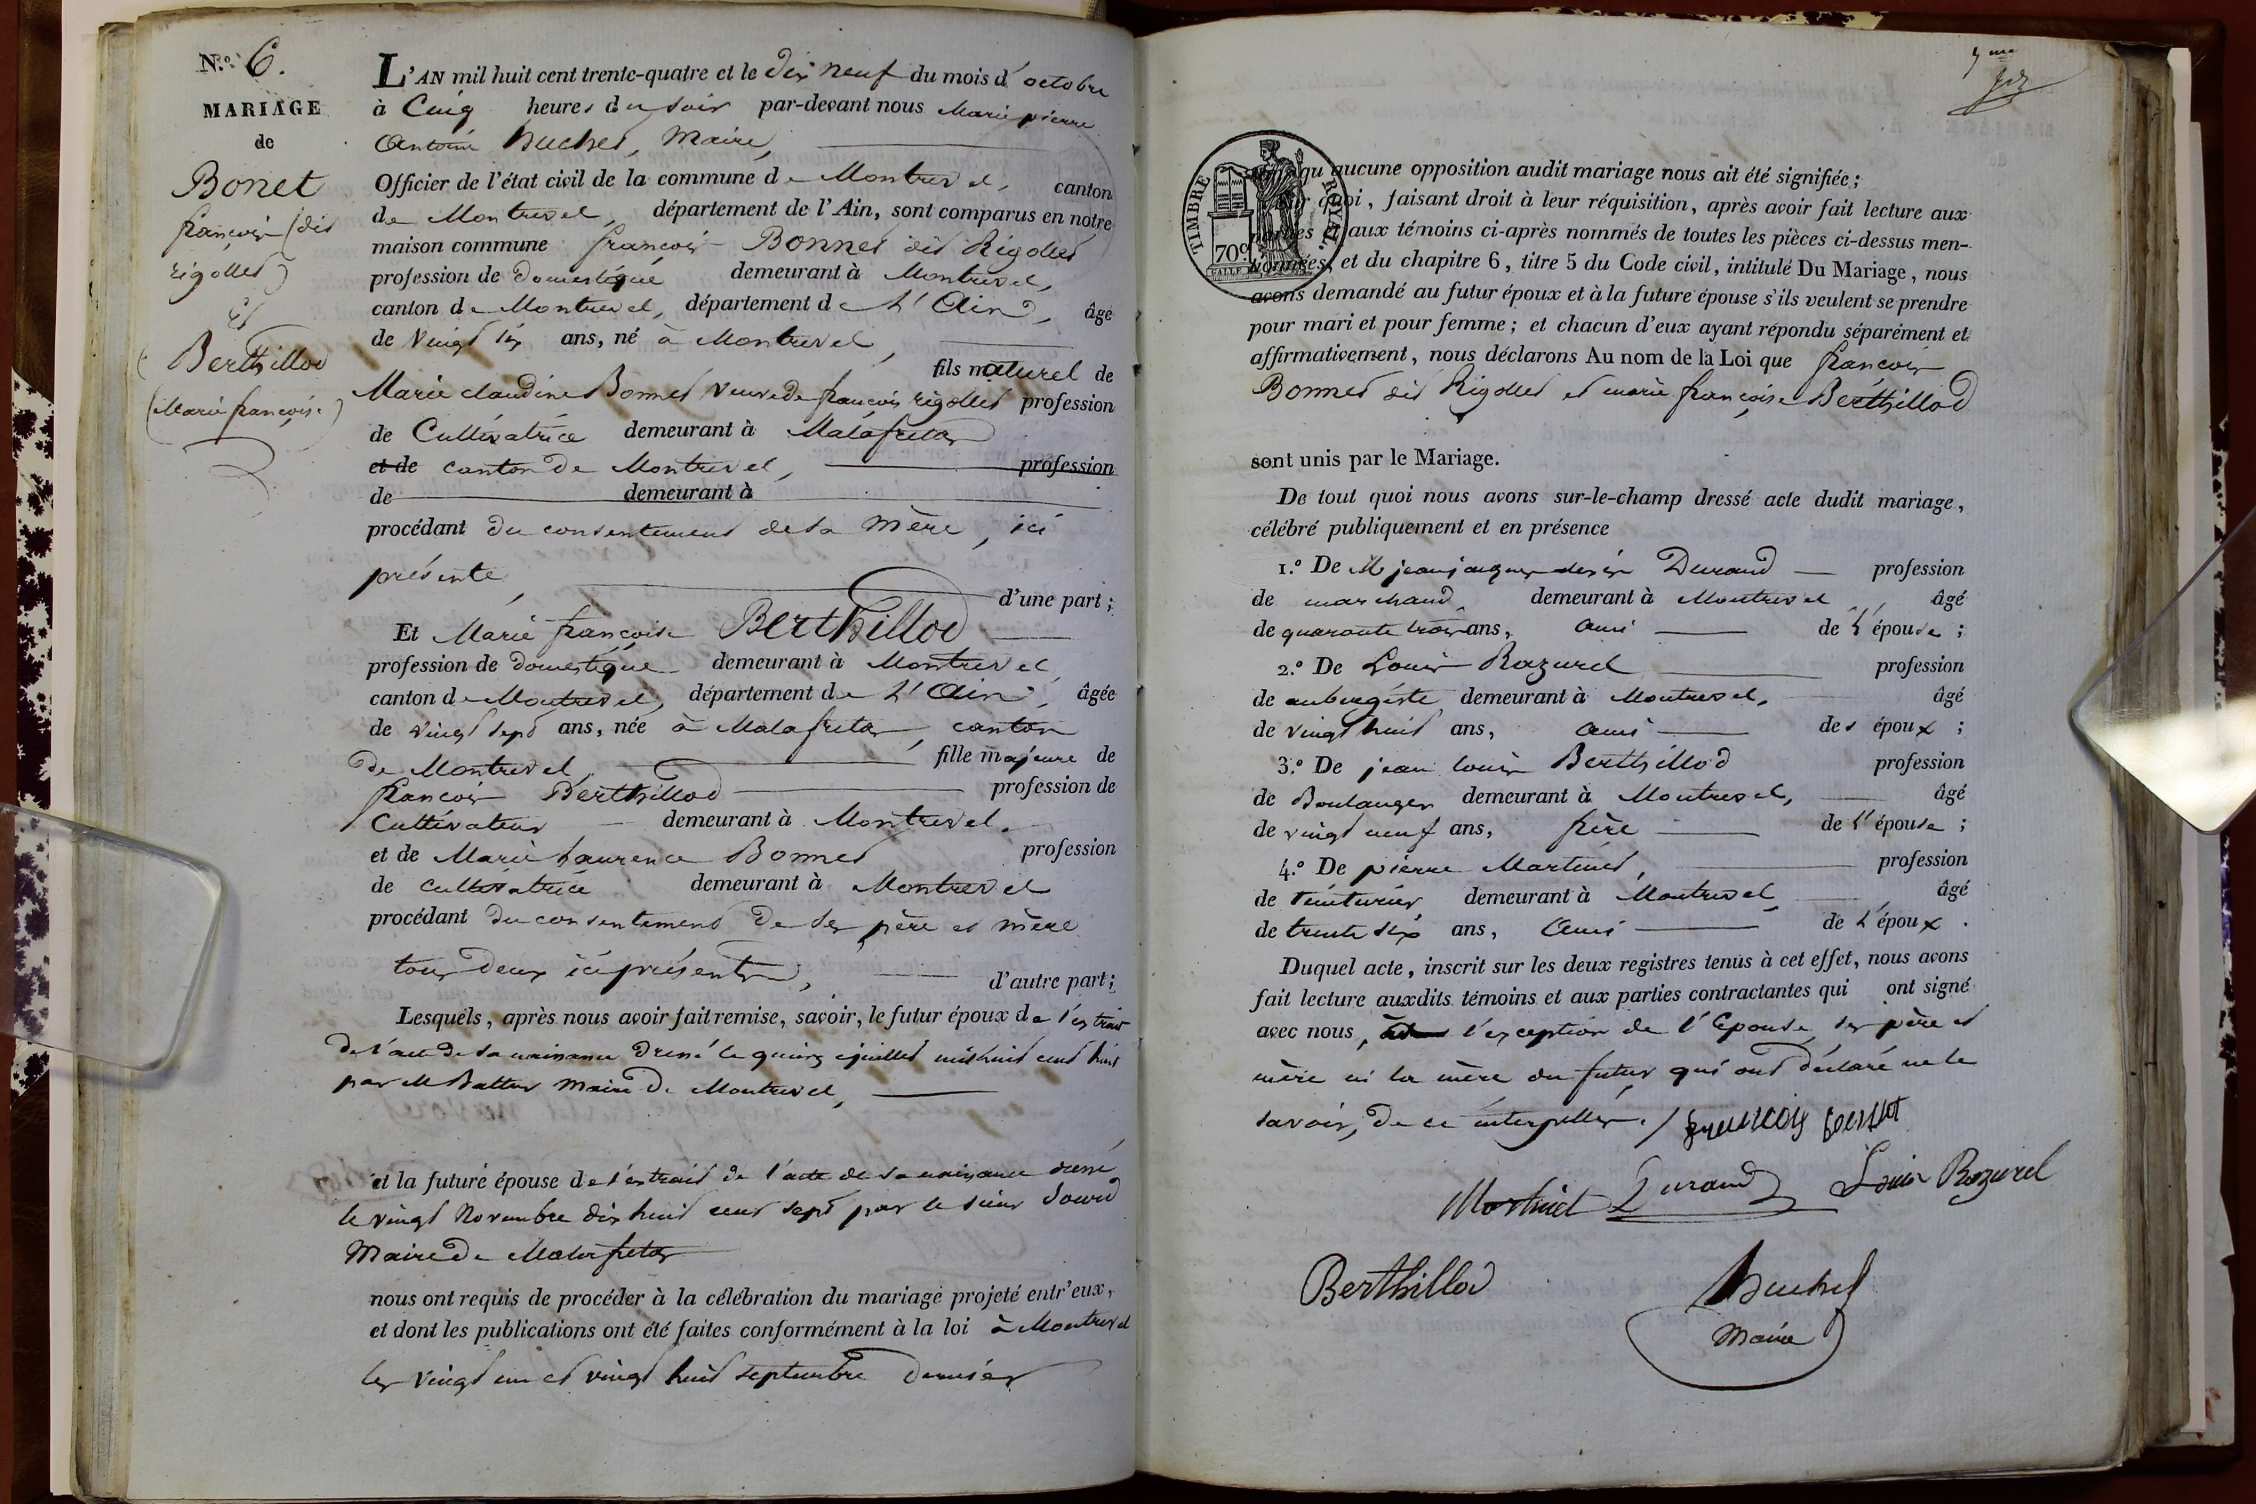 N.º 6.
MARIAGE
de
Bonet
françois (dit
rigollet)
et
Berthillod
(Marie françoise)
L'AN mil huit cent trente-quatre et le dix neuf du mois d'octobre
à Cinq heures du soir par-devant nous Marie pierre
Antoine Buchet, Maire,
Officier de l'état civil de la commune de Montrevel, canton
de Montrevel, département de l'Ain, sont comparus en notre
maison commune françois Bonnet dit Rigollet
profession de domestique demeurant à Montrevel,
canton de Montrevel, département de L'Ain, âgé
de Vingt six ans, né à Montrevel,
fils naturel de
Marie claudine Bonnet veuve de françois rigollet profession
de Cultivatrice demeurant à Malafretaz
et de canton de Montrevel, profession
de demeurant à
procédant du consentement de sa Mère, ici
présente, d'une part;
Et Marie françoise Berthillod
profession de domestique demeurant à Montrevel,
canton de Montrevel, département de L'Ain, âgée
de vingt sept ans, née à Malafretaz, canton
de Montrevel, fille majeure de
françois Berthillod profession de
Cultivateur demeurant à Montrevel.
et de Marie Laurence Bonnet profession
de cultivatrice demeurant à Montrevel
procédant du consentement de ses père et mère
tous deux ici présents, d'autre part;
Lesquels, après nous avoir fait remise, savoir, le futur époux de l'extrait
de l'acte de sa naissance dressé le quinze juillet mil huit cent huit
par M Maire de Montrevel,
et la future épouse de l'extrait de l'acte de sa naissance dressé
le vingt Novembre dix huit cent sept par le sieur
Maire de Malafretaz
nous ont requis de procéder à la célébration du mariage projeté entr'eux,
et dont les publications ont été faites conformément à la loi à Montrevel
les vingt un et vingt huit septembre dernier
TIMBRE ROYAL.
70c
qu'aucune opposition audit mariage nous ait été signifiée;
Sur quoi, faisant droit à leur réquisition, après avoir fait lecture aux
parties et aux témoins ci-après nommés de toutes les pièces ci-dessus men-
tionnées, et du chapitre 6, titre 5 du Code civil, intitulé Du Mariage, nous
avons demandé au futur époux et à la future épouse s'ils veulent se prendre
pour mari et pour femme; et chacun d'eux ayant répondu séparément et
affirmativement, nous déclarons Au nom de la Loi que françois
Bonnet dit Rigollet et marie françoise Berthillod
sont unis par le Mariage.
De tout quoi nous avons sur-le-champ dressé acte dudit mariage,
célébré publiquement et en présence
1.º De M jean jacques Durand profession
de marchand demeurant à Montrevel, âgé
de quarante trois ans, ami de L'épouse;
2.º De Louis Rozurel profession
de aubergiste demeurant à Montrevel, âgé
de vingt huit ans, ami des époux;
3.º De jean louis Berthillod profession
de Boulanger demeurant à Montrevel, âgé
de vingt neuf ans, frère de L'épouse;
4.º De pierre Martinet, profession
de teinturier demeurant à Montrevel, âgé
de trente six ans, Ami de L'époux.
Duquel acte, inscrit sur les deux registres tenus à cet effet, nous avons
fait lecture auxdits témoins et aux parties contractantes qui ont signé
avec nous, l'exception de l'Epouse, ses père et
mère ni la mère du futur qui ont déclaré ne le
savoir, de ce interpellés. françois
Martinet Durand Louis Rozurel
Berthillod Buchet
Maire